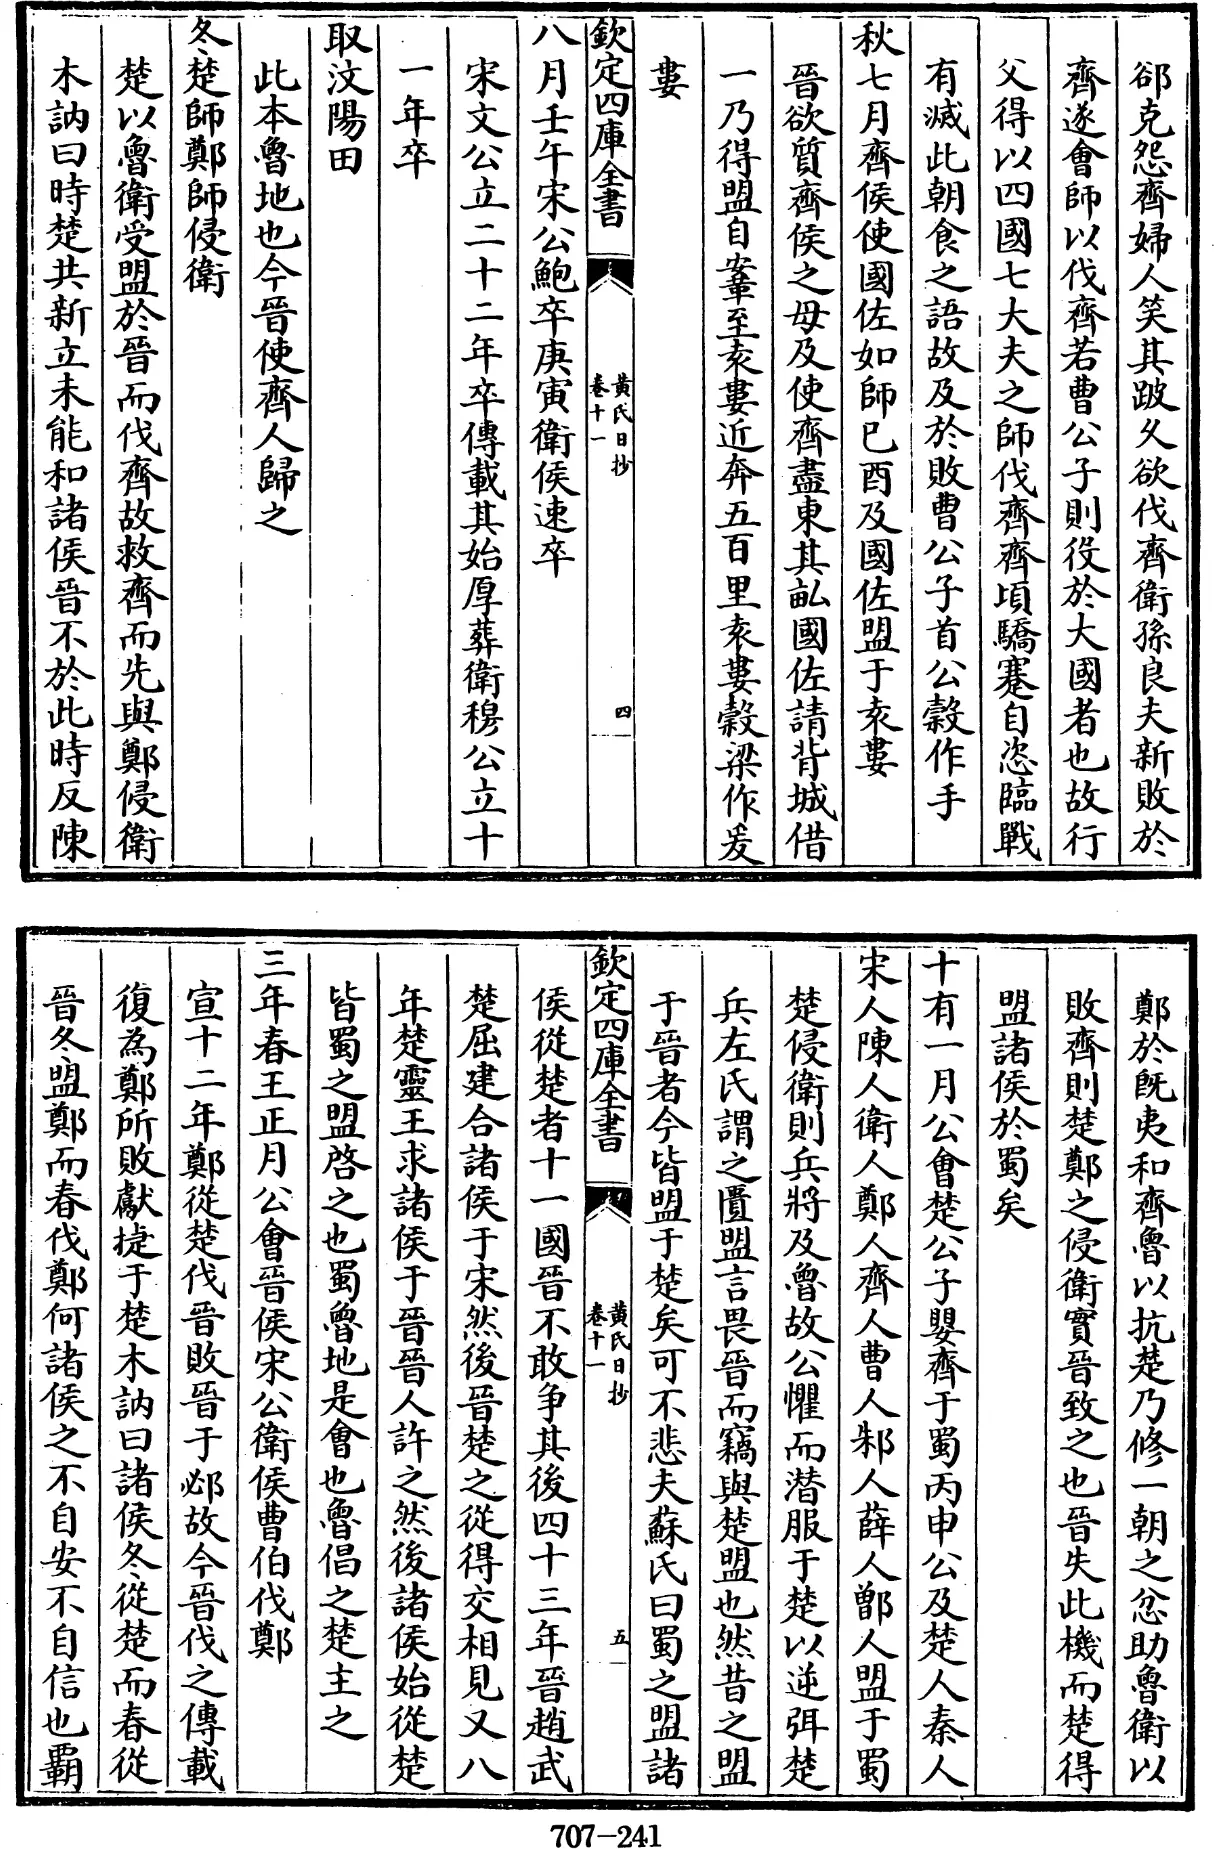 郤克怨齊婦人笑其跛久欲伐齊衛孫良夫新敗於
齊遂會師以伐齊若曹公子則役於大國者也故行
父得以四國七大夫之師伐齊齊頃驕蹇自恣臨戰
有滅此朝食之語故及於敗曹公子首公榖作手
秋七月齊侯使國佐如師巳酉及國佐盟于袁婁
晉欲質齊侯之母及使齊盡東其畝國佐請背城借
一乃得盟自鞌至袁婁近奔五百里袁婁榖梁作爰
婁
欽定四庫全書
黄氏日抄
卷十一
四
八月壬午宋公鮑卒庚寅衛侯速卒
宋文公立二十二年卒傳載其始厚葬衛穆公立十
一年卒
取汶陽田
此本魯地也今晉使齊人歸之
冬楚師鄭師侵衛
楚以魯衛受盟於晉而伐齊故救齊而先與鄭侵衛
木訥曰時楚共新立未能和諸侯晉不於此時反陳
鄭於既夷和齊魯以抗楚乃修一朝之忿助魯衛以
敗齊則楚鄭之侵衛實晉致之也晉失此機而楚得
盟諸侯於蜀矣
十有一月公會楚公子嬰齊于蜀丙申公及楚人秦人
宋人陳人衛人鄭人齊人曹人邾人薛人鄫人盟于蜀
楚侵衛則兵將及魯故公懼而潜服于楚以逆弭楚
兵左氏謂之匱盟言畏晉而竊與楚盟也然昔之盟
于晉者今皆盟于楚矣可不悲夫蘇氏曰蜀之盟諸
欽定四庫全書
黄氏日抄
卷十一
五
侯從楚者十一國晉不敢争其後四十三年晉趙武
楚屈建合諸侯于宋然後晉楚之從得交相見又八
年楚靈王求諸侯于晉晉人許之然後諸侯始從楚
皆蜀之盟啓之也蜀魯地是會也魯倡之楚主之
三年春王正月公會晉侯宋公衛侯曹伯伐鄭
宣十二年鄭從楚伐晉敗晉于邲故今晉伐之傳載
復為鄭所敗獻捷于楚木訥曰諸侯冬從楚而春從
晉冬盟鄭而春伐鄭何諸侯之不自安不自信也覇
707-241